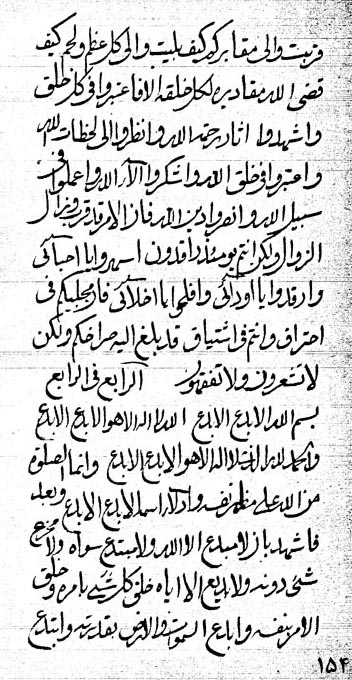 قربت والى مقابركم كيف بليت والى كل عظم ولحم كيف
قضى الله مقاديره لكل خلقه الا فاعتبروا فى كل خلق
واشهدوا اثار رحمة الله وانظروا الى لحظات الله
واعتبروا فى خلق الله واشكروا آلاء الله واعملوا فى
سبيل الله وانصروا دين الله فان الامر قد قرب
الزوال ولكن انتم يومئذ راقدون اسهروا يا احبائى
وارقدوا يا اودائى وافلحوا يا اخلائى فان فى
احتراق وانتم فى اشتياق قد بلغ اليه صراخكم ولكن
لا تشعرون ولا تفقهون الرابع فى الرابع
بسم الله الابدع الابدع الله لا اله الا هو الابدع الابدع
والحمد لله الذى لا اله الا هو الابدع الابدع وانما الصلوة
من الله على مظهر نفسه وادلاء اسمه الابدع الابدع وبعد
فاشهد بان لا مبدع الا الله ولا مبتدع سواه ولا مخترع
شىء دونه ولا بديع الا اياه خلق كل شىء بامره وخلق
الامر بنفسه وابدع السموات والارض بقدرته وابتدع
۱۵۴